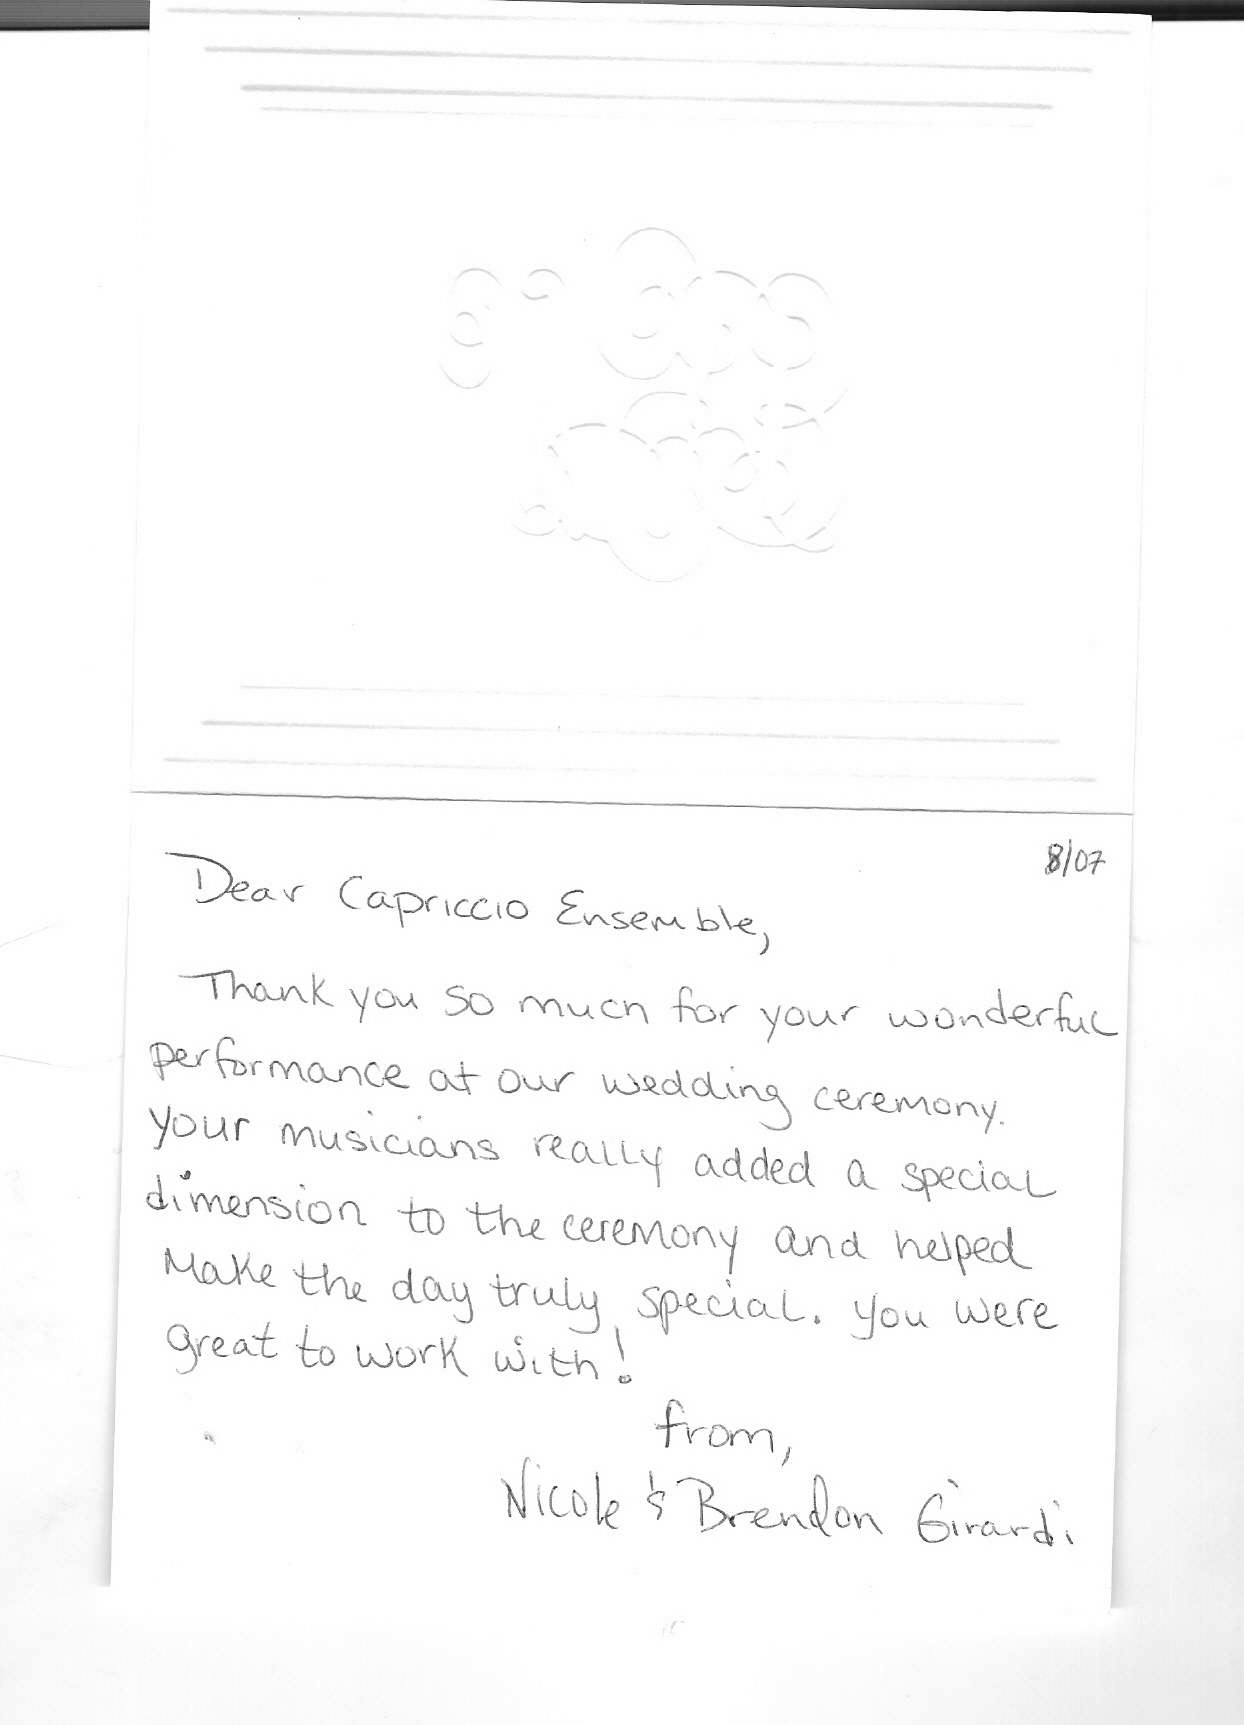 8/07
Dear Capriccio Ensemble,
Thank you so much for your wonderful
performance at our wedding ceremony.
Your musicians really added a special
dimension to the ceremony and helped
Make the day truly special. You were
great to work with!
from,
Nicole & Brendon Girardi